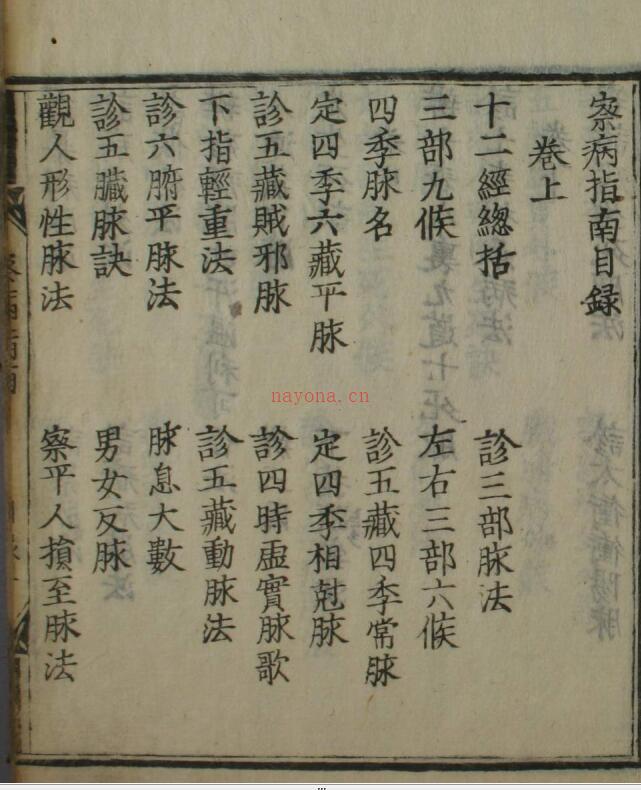 察病指南目録
卷上
十二經總括
診三部脉法
三部九候
左右三部六候
四季脉名
診五藏四季常脉
定四季六藏平脉
定四季相尅脉
診五藏賊邪脉
診四時虛實脉歌
下指輕重法
診五藏動脉法
診六腑平脉法
脉息大數
診五臟脉訣
男女反脉
觀人形性脉法
察平人損至脉法
nayona.cn